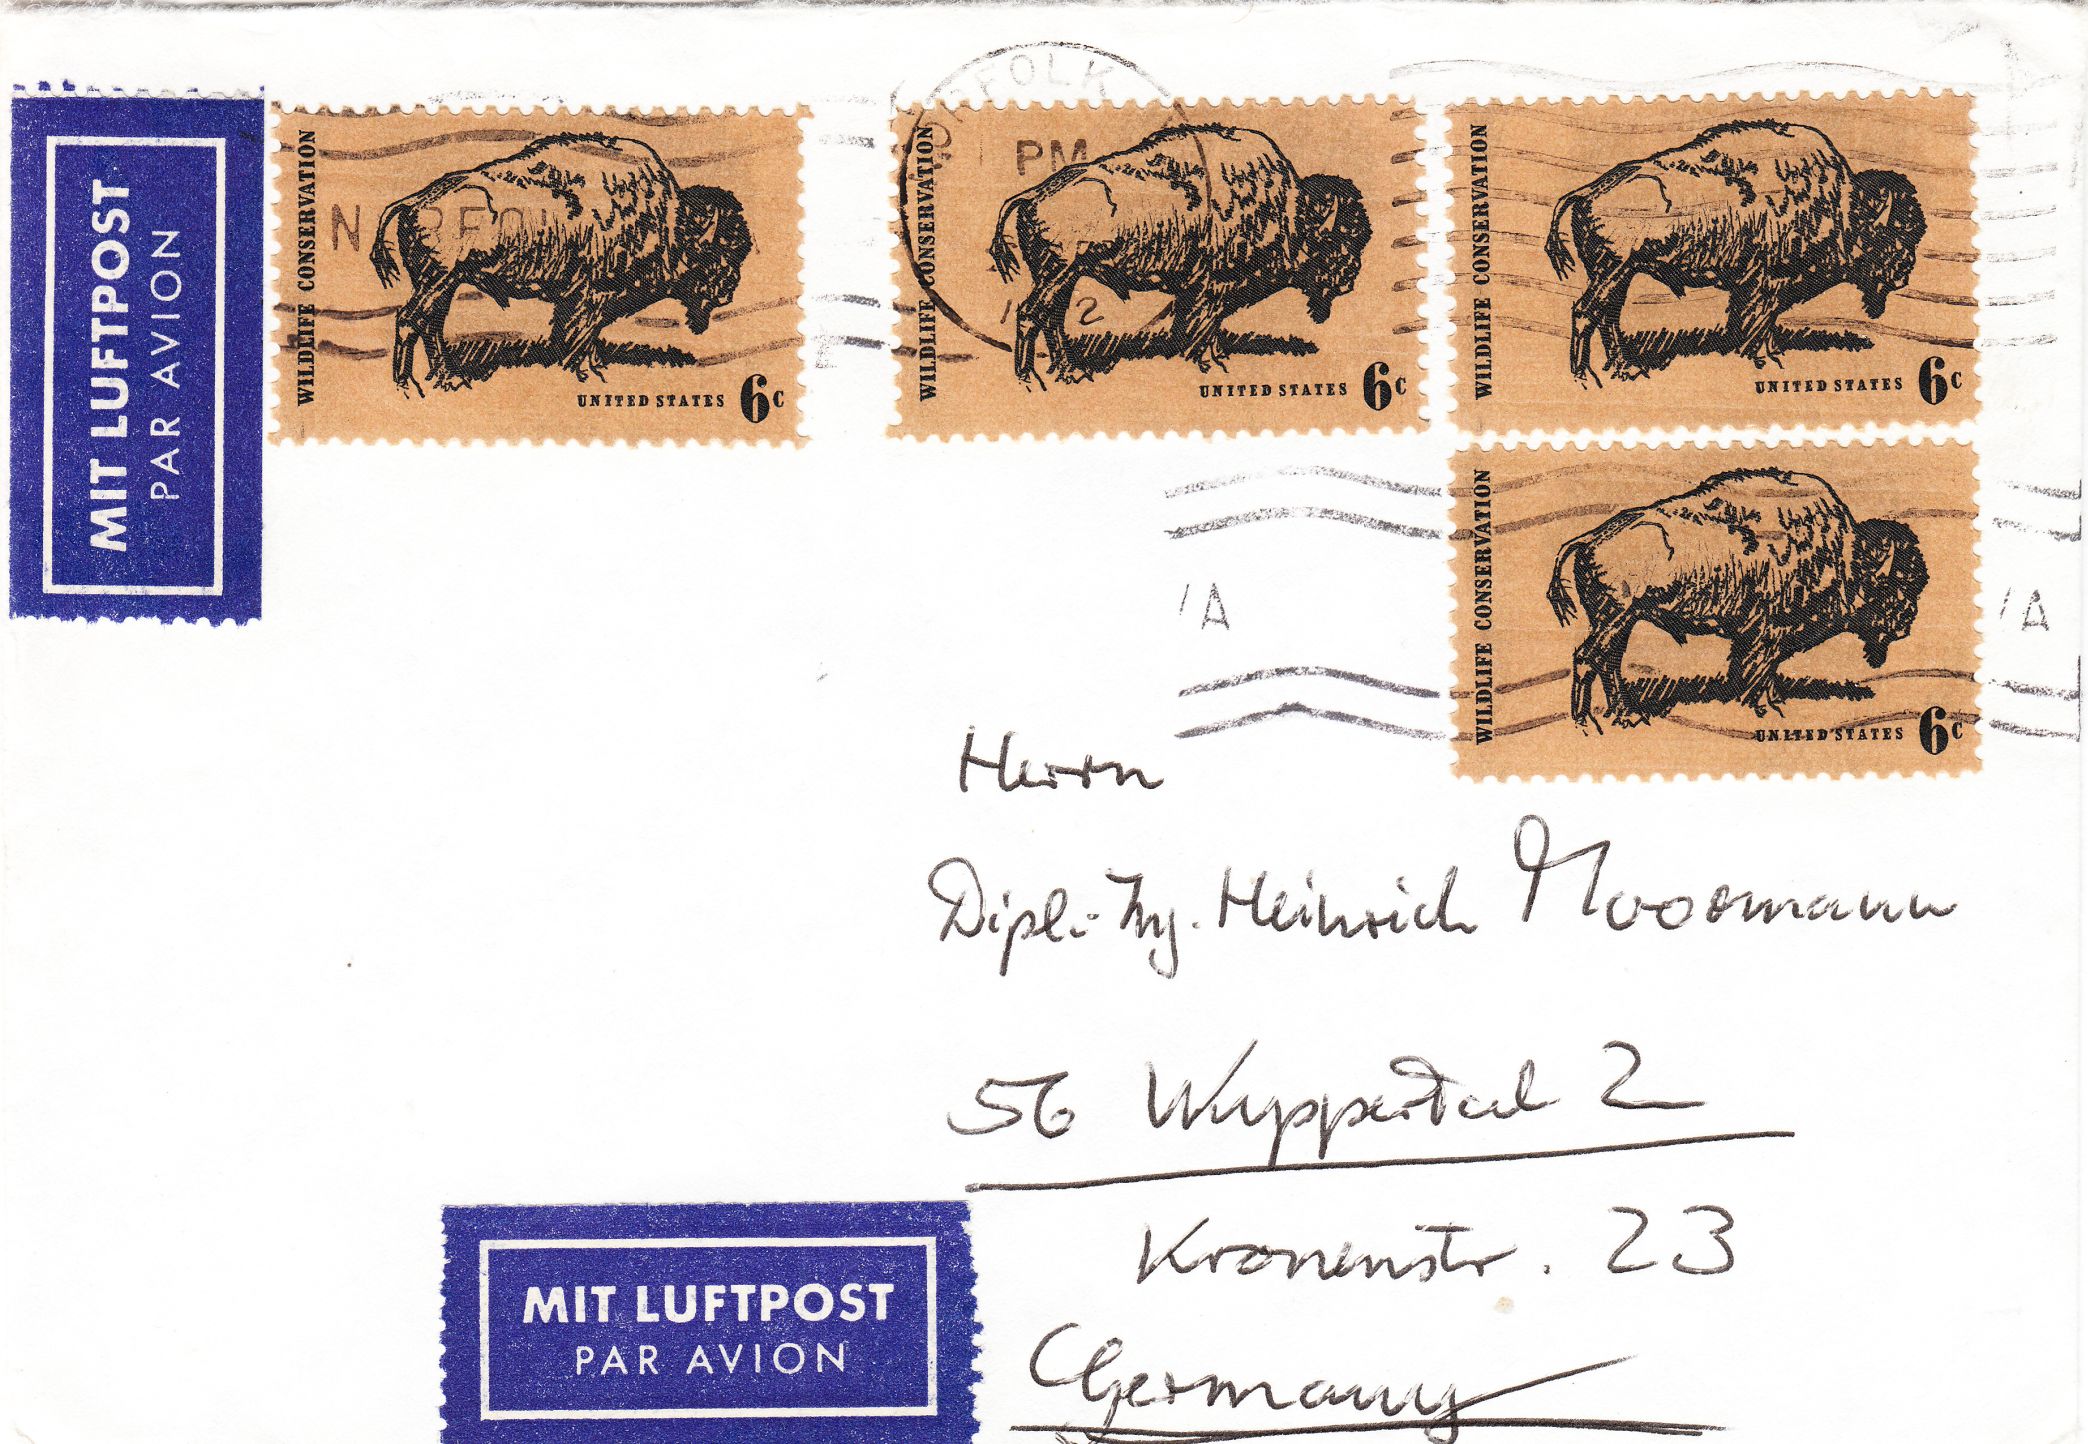 MIT LUFTPOST
PAR AVION
WILDLIFE CONSERVATION
UNITED STATES 6c
NORFOLK
PM
WILDLIFE CONSERVATION
UNITED STATES 6c
WILDLIFE CONSERVATION
UNITED STATES 6c
WILDLIFE CONSERVATION
UNITED STATES 6c
Herrn
Dipl.-Ing. Heinrich Moormann
56 Wuppertal 2
Kronenstr. 23
Germany
MIT LUFTPOST
PAR AVION